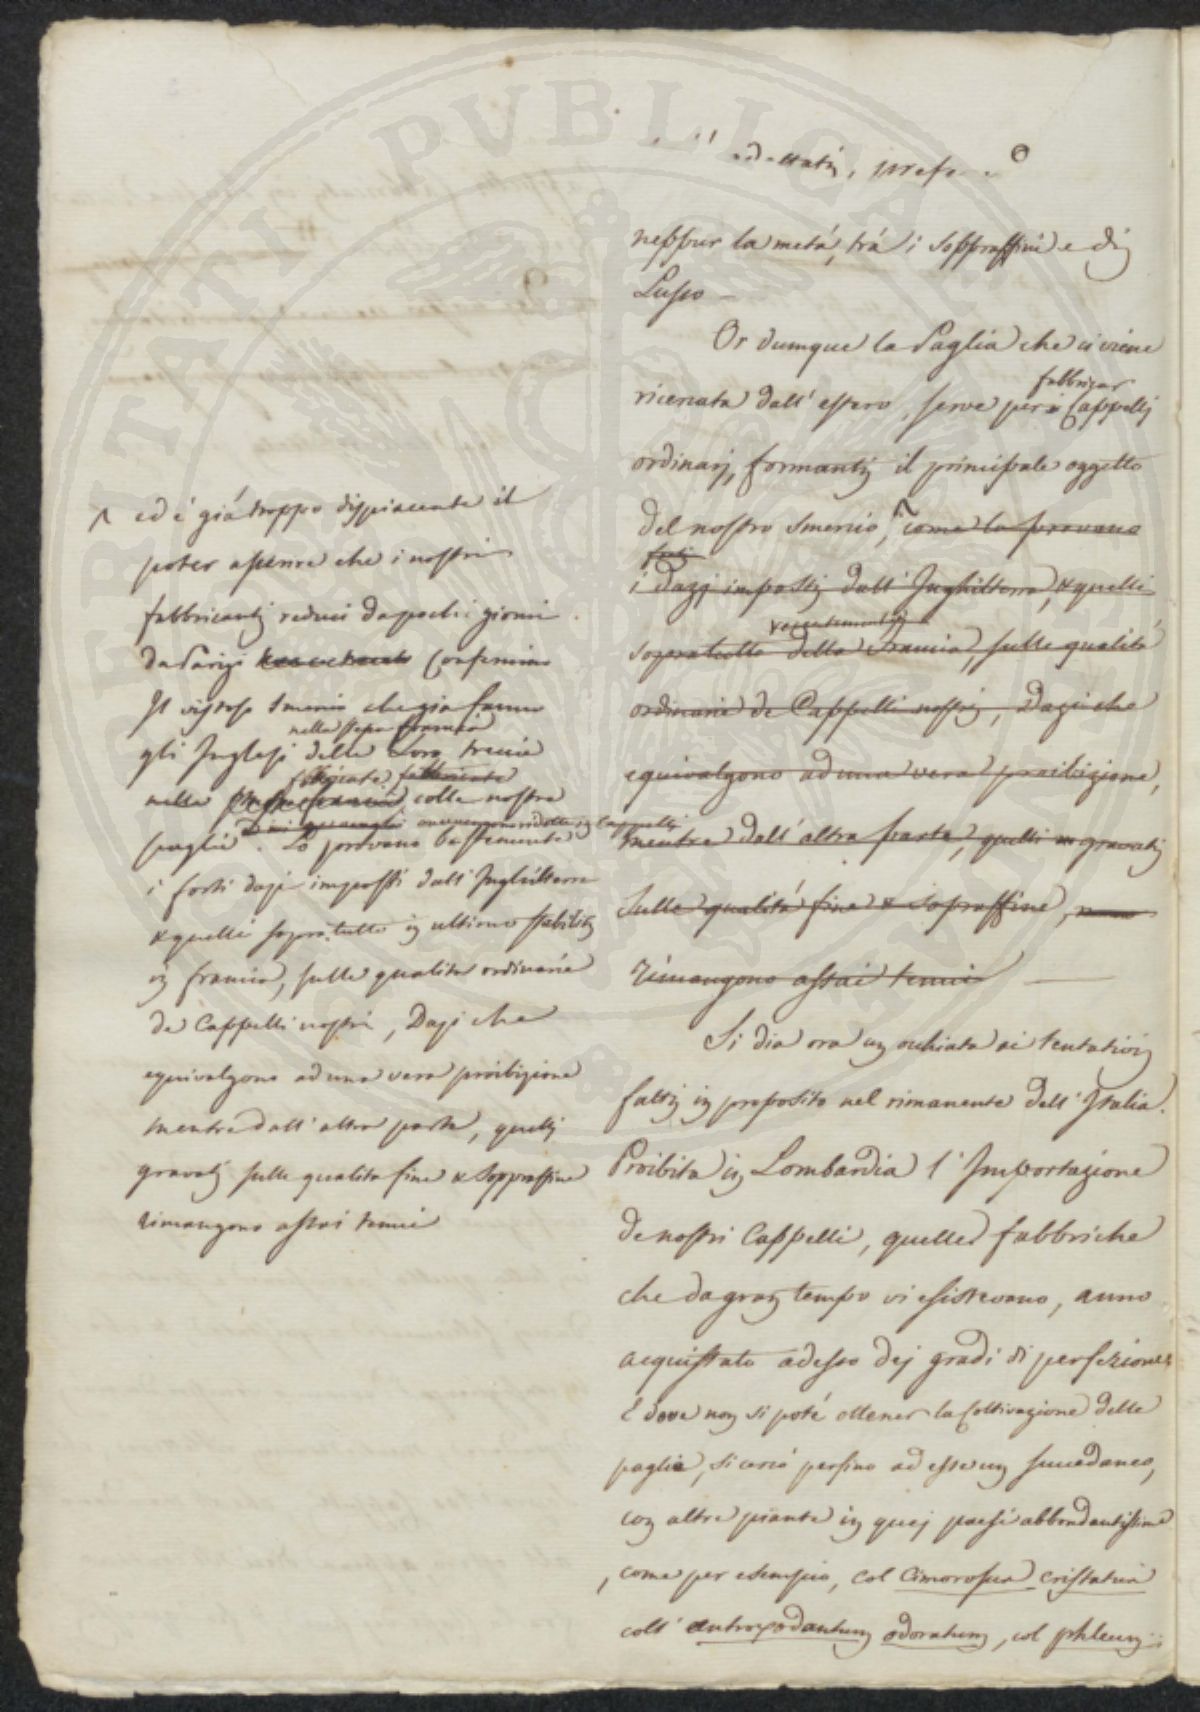 adattati, prefe
neppur la metá, trá i soppraffini e di
Lusso —
Or dumque la Paglia che ci viene
fabbricar
ricercata dall' estero, serve per i Cappelli
ordinarj, formanti il principale oggetto
del nostro smercio, ^ come lo provano
i dazj imposti dall' Inghilterra, & quelli
sopratutto della Francia, sulle qualitá
ordinarie de Cappelli nostri, Dazi che
equivalgono ad una vera proibizione,
mentre dall' altra parte, quelli gravati
sulle qualitá fine & sopraffine,
rimangono assai tenui —
Si dia ora un ochiata ai tentativi
fatti in proposito nel rimanente dell' Italia.
Proibita in Lombardia l' Importazione
de nostri Cappelli, quelle fabbriche
che da gran tempo vi esistevano, anno
acquistato adesso dej gradi di perfezione
E dove non si poté ottener la Coltivazione delle
paglie, si cercó persino ad esse un succedaneo,
con altre piante in quej paesi abbondantissime
, come per esempio, col Cimorosua cristatua
coll' antroxodantum odoratum, col phleum
^ ed é giá troppo dispiacente il
poter asserire che i nostri
fabbricanti reduci da pochi giorni
da Parigi Confermino
Il vistoso smercio che gia fanno
nella stessa Francia
gli Inglesi delle Loro treccie
fabbricate
nella colle nostre
paglie. Lo provano bastemente
i forti dazi imposti dall' Inghilterra
& quelli sopratutto in ultimo stabiliti
in Francia, sulle qualita ordinarie
de Cappelli nostri, Dazi che
equivalgono ad una vera proibizione
mentre dall' altra parte, quelli
gravati sulle qualita fine & soppraffine
rimangono assai tenui